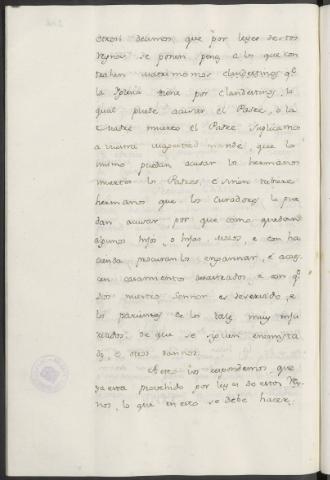 otrosi decimos, que por leyes destos
Reynos se ponen pena a los que con
trahen matrimonios clandestinos qe
la Iglesia tiene por clandestinos, lo
qual puede acusar el Padre, o la
Madre muerto el Padre suplicamos
a vuestra magestad mande, que lo
mismo puedan acusar los hermanos
muertos los Padres, e si non tubiere
hermanos que los Curadores lo pue
dan acusar, por que como quedan
algunos hijos, o hijas ricos, e con ha
cienda procuran los engannar, e acaes
cen casamientos desastrados, e con qe
Dios nuestro Sennor es deservido, e
los parientes de los tales muy inju
riados, de que se siguen enemista
des, e otros dannos.
A esto vos respondemos, que
ya esta provehido por leyes destos Rey
nos, lo que en esto se debe hacer.